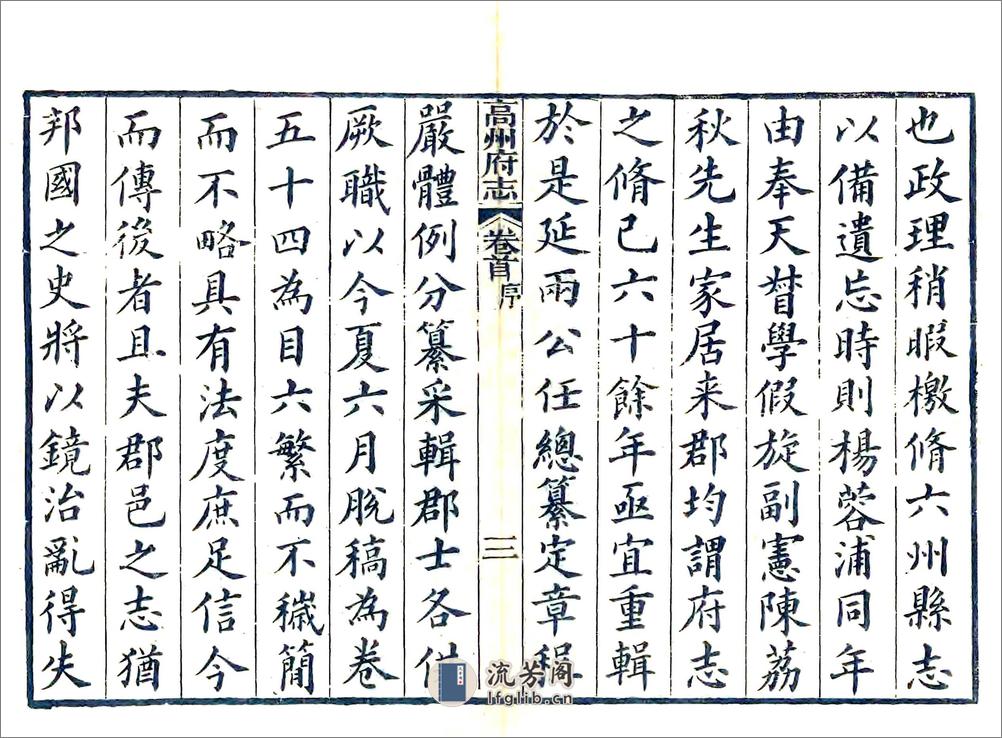 也政理稍暇檄脩六州縣志
以備遺忘時則楊蓉浦同年
由奉天督學假旋副憲陳荔
秋先生家居来郡均謂府志
之脩已六十餘年亟宜重輯
於是延兩公任總纂定章程
高州府志 卷首 序 三
嚴體例分纂采輯郡士各供
厥職以今夏六月脫稿為卷
五十四為目六繁而不穢簡
而不略具有法度庶足信今
而傳後者且夫郡邑之志猶
邦國之史將以鏡治亂得失
流芳阁
lfglib.cn